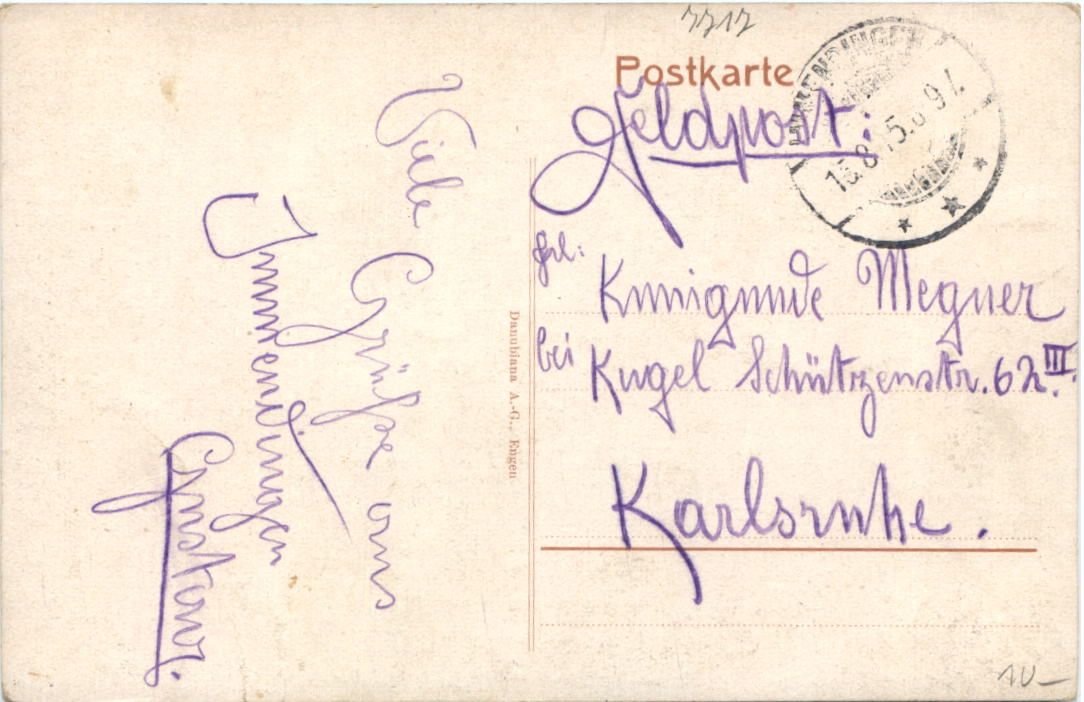 7717
Postkarte
Feldpost.
IMMENDINGEN
15.8.15.8-9V.
Frl:
Kunigunde Megner
bei Kugel Schützenstr. 62.III.
Karlsruhe.
Viele Grüße aus
Immendingen
Gustav.
Danubiana A.-G., Engen